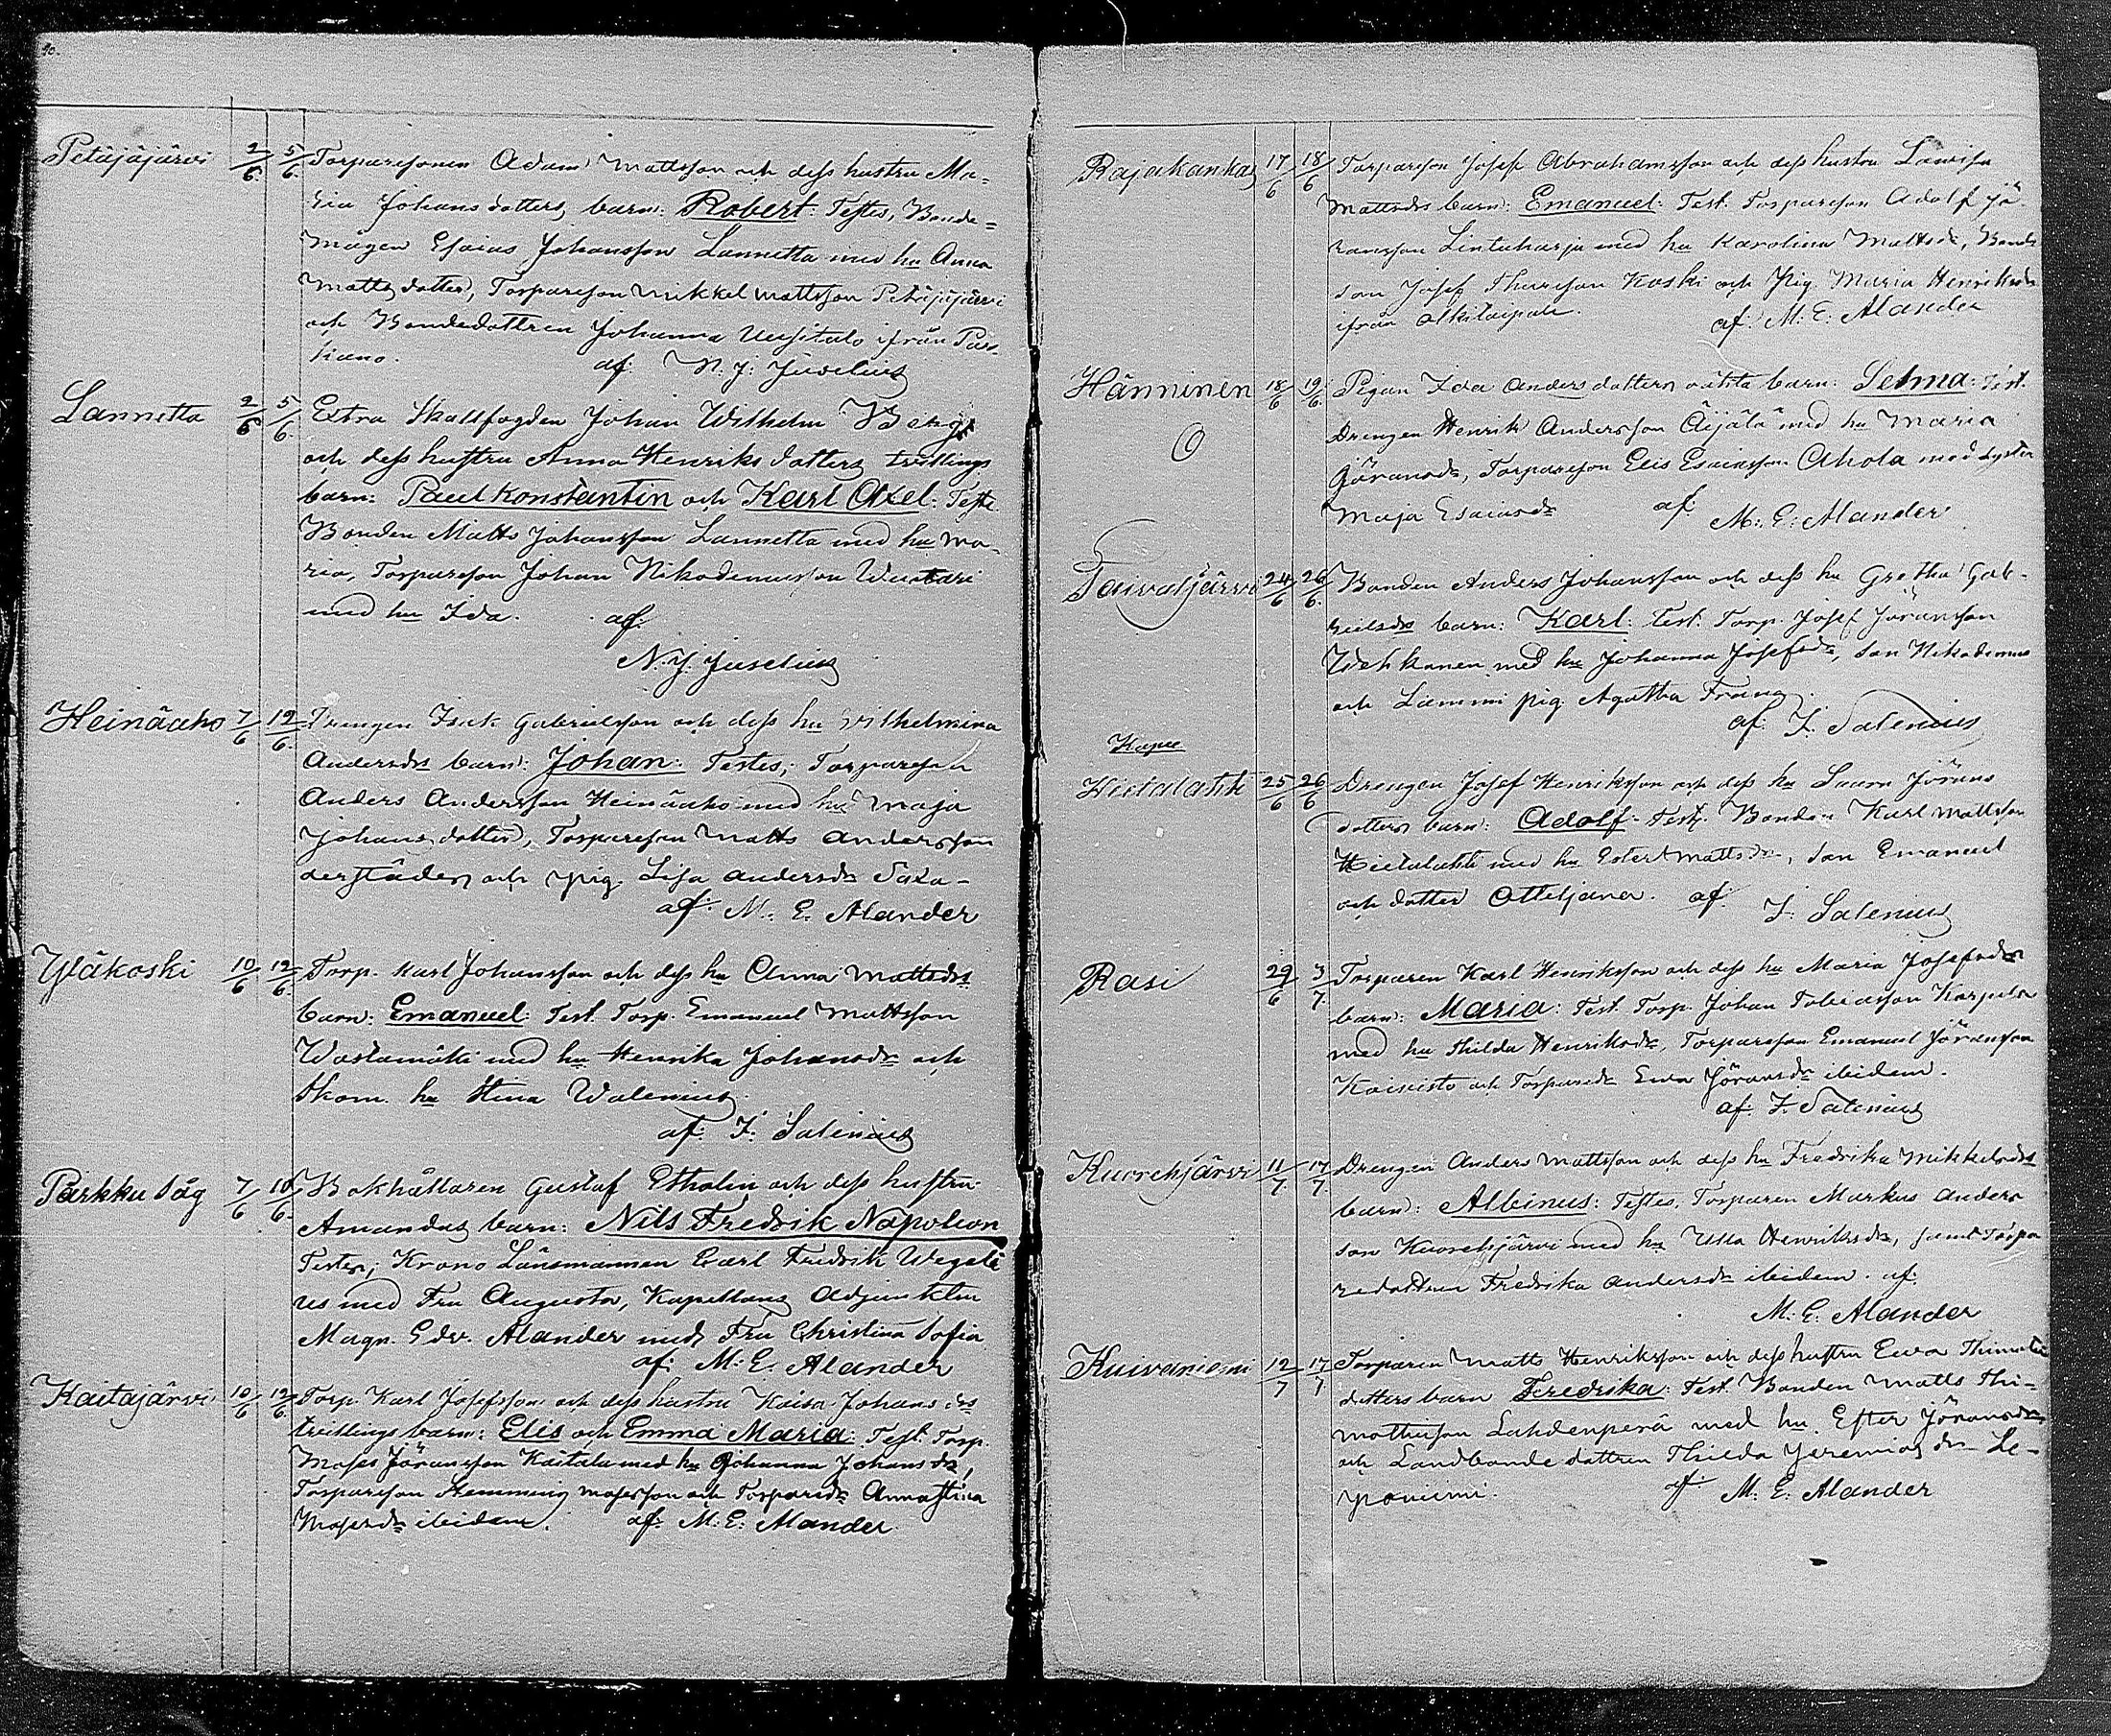 40.
Petäjäjärvi 2/6. 5/6. Torparesonen Adam Mattsson och dess hustru Ma-
ria Johansdotters barn: Robert: Testes, Bonde-
mågen Esaias Johansson Lannetta med hu Anna
Mattsdotter, Torpareson Mikkel Mattsson Petäjäjärvi
och Bondedottren Johanna Uusitalo ifrån Par-
kano. af. N. J. Juselius
Lannetta 2/6 5/6. Extra Skallfogden Johan Wilhelm Berg
och dess hustru Anna Henriksdotters tvillings
barn: Paul Konstantin och Karl Axel: Teste.
Bonden Matts Johansson Lannetta med hu Ma-
ria, Torpareson Johan Nikodemusson Wuotari
med hu Ida. af:
N. J. Juselius
Heinäaho 7/6 12/6. Drengen Isak Gabrielsson och dess hu Wilhelmina
Andersdrs barn: Johan: Testes; Torpareson
Anders Andersson Heinäaho med hu Maja
Johansdotter, Torpareson Matts Andersson
derstädes och pig. Lisa Andersdr Saxa-
af. M. E. Alander
Yläkoski 10/6 12/6. Torp. Karl Johansson och dess hu Anna Mattsdrs
barn: Emanuel: Test. Torp. Emanuel Mattsson
Wastamäki med hu Henrika Johansdr och
Skom. hu Stina Walenius.
af: F. Salenius
Parkku såg 7/6 10/6. Bokhållaren Gustaf Etholin och dess hustru
Amandas barn: Nils Fredrik Napoleon
Testes; Krono Länsmannen Carl Fredrik Wegeli
us med Fru Augusta, Kapellans Adjunkten
Magn. Edv. Alander med Fru Christina Sofia
af: M. E. Alander
Kaitajärvi 10/6 12/6. Torp. Karl Josefsson och dess hustru Kaisa Johansdrs
tvillings barn: Elis och Emma Maria: Test. Torp.
Moses Jöransson Kaitala med hu Johanna Johansdr,
Torpareson Hemming Mosesson och Torparedr Annastina
Mosesdr ibidem. af: M. E. Alander
Rajakankas 17/6 18/6 Torpareson Josef Abrahamsson och dess hustru Lovisa
Mattsdrs barn: Emanuel: Test. Torpareson Adolf Jö-
ransson Lintuharju med hu Karolina Mattsdr, Bonde
son Josef Thuresson Koski och Pig. Maria Henriksdr
ifrån Alkilaipale. af: M. E. Alander
Hänninen 18/6 19/6. Pigan Ida Andersdottern oäkta barn: Selma: Test.
O Drengen Henrik Andersson Äijälä med hu Maria
Göransdr, Torpareson Elis Esaiasson Ahola med syster
Maja Esaiasdr af: M. E. Alander
Taivaljärvi 24/6 26/6. Bonden Anders Johansson och dess hu Gretha Gab-
rielsdrs barn: Karl: Test. Torp. Josef Jöransson
Wehkanen med hu Johanna Josefsdr, son Nikodemus
och Lammi pig. Agatha Frans.
af: F. Salenius
Kupu
Hietalahti 25/6 26/6 Drengen Josef Henriksson och dess hu Laura Jörans
dotters barn: Adolf- Test. Bonden Karl Mattsson
Hietalahti med hu Ester Mattsdr, son Emanuel
och dotter Otteljana. af F. Salenius
Rasi 29/6 3/7. Torparen Karl Henriksson och dess hu Maria Josefsdrs
barn: Maria: Test. Torp. Johan Tobiasson Karpela
med hu Thilda Henriksdr, Torpareson Emanuel Jöransson
Koivisto och Torparedr Ewa Jöransdr ibidem.
af: F. Salenius
Kuorehjärvi 11/7. 17/7. Drengen Anders Mattsson och dess hu Fredrika Mikkelsdrs
barn: Albinus: Testes. Torparen Markus Anders
son Kuorehjärvi med hu Ulla Henriksdr, samt Torpa
redottren Fredrika Andersdr ibidem. af.
M. E. Alander
Kuivaniemi 12/7 17/7 Torparen Matts Henriksson och dess hustru Ewa Thimotei
dotters barn Fredrika: Test. Bonden Matts Thi-
motheusson Lahdenperä med hu Ester Jöransdr
och Landbonde dottren Thilda Jeremiasdr Le-
poniemi. af M. E. Alander